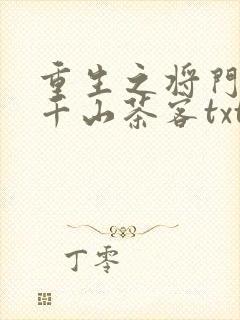 重生之将门
千山茶客txt
丁零